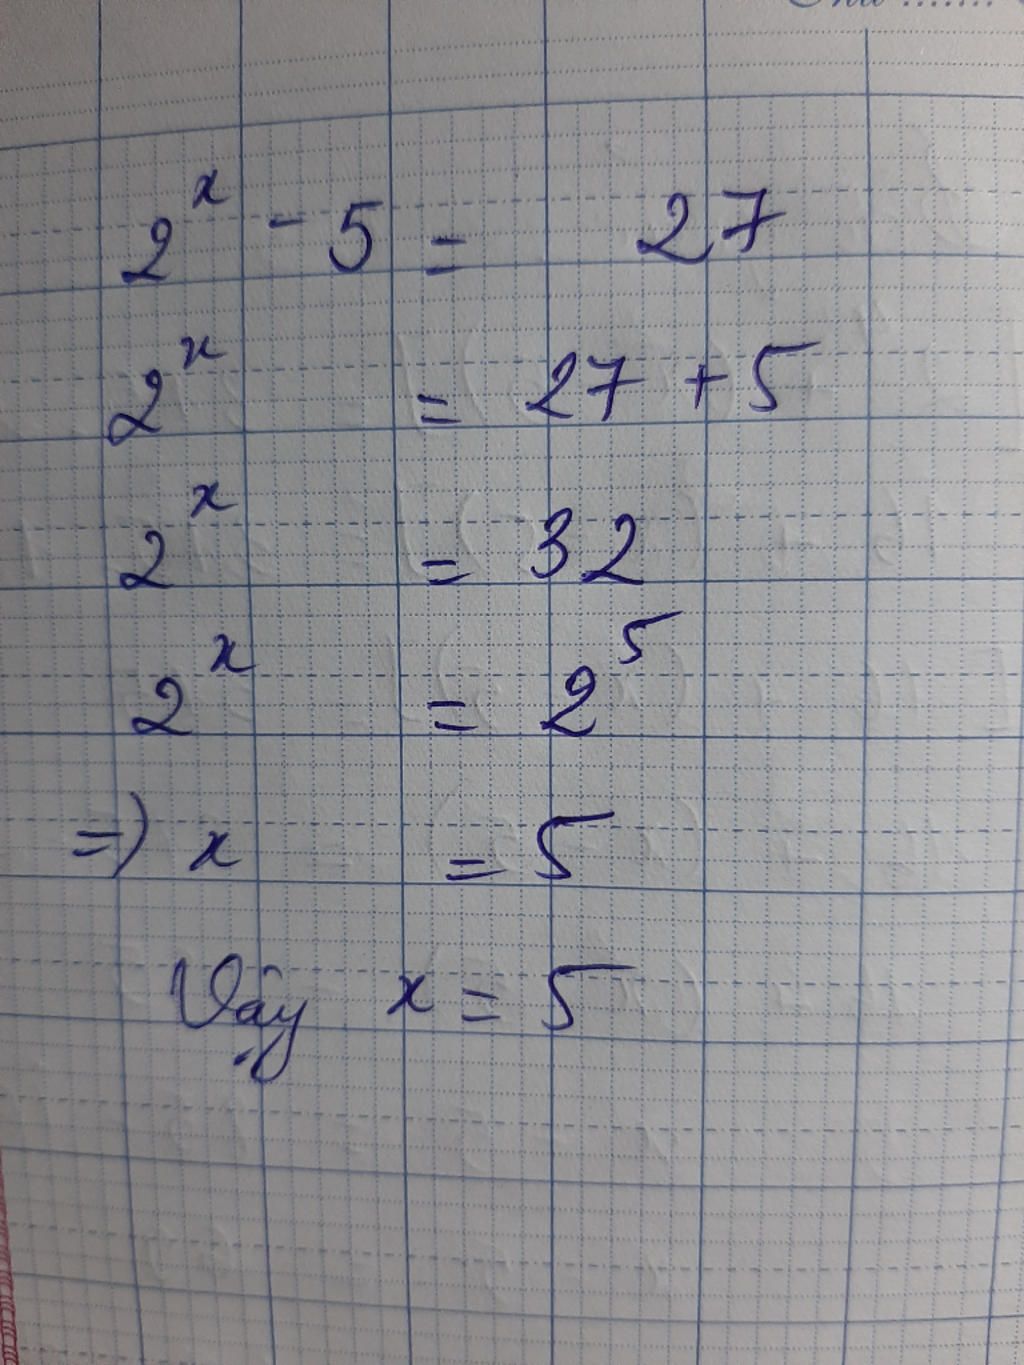 2ˣ - 5 = 27
2ˣ = 27 + 5
2ˣ = 32
2ˣ = 2⁵
=) x = 5
Vậy x = 5